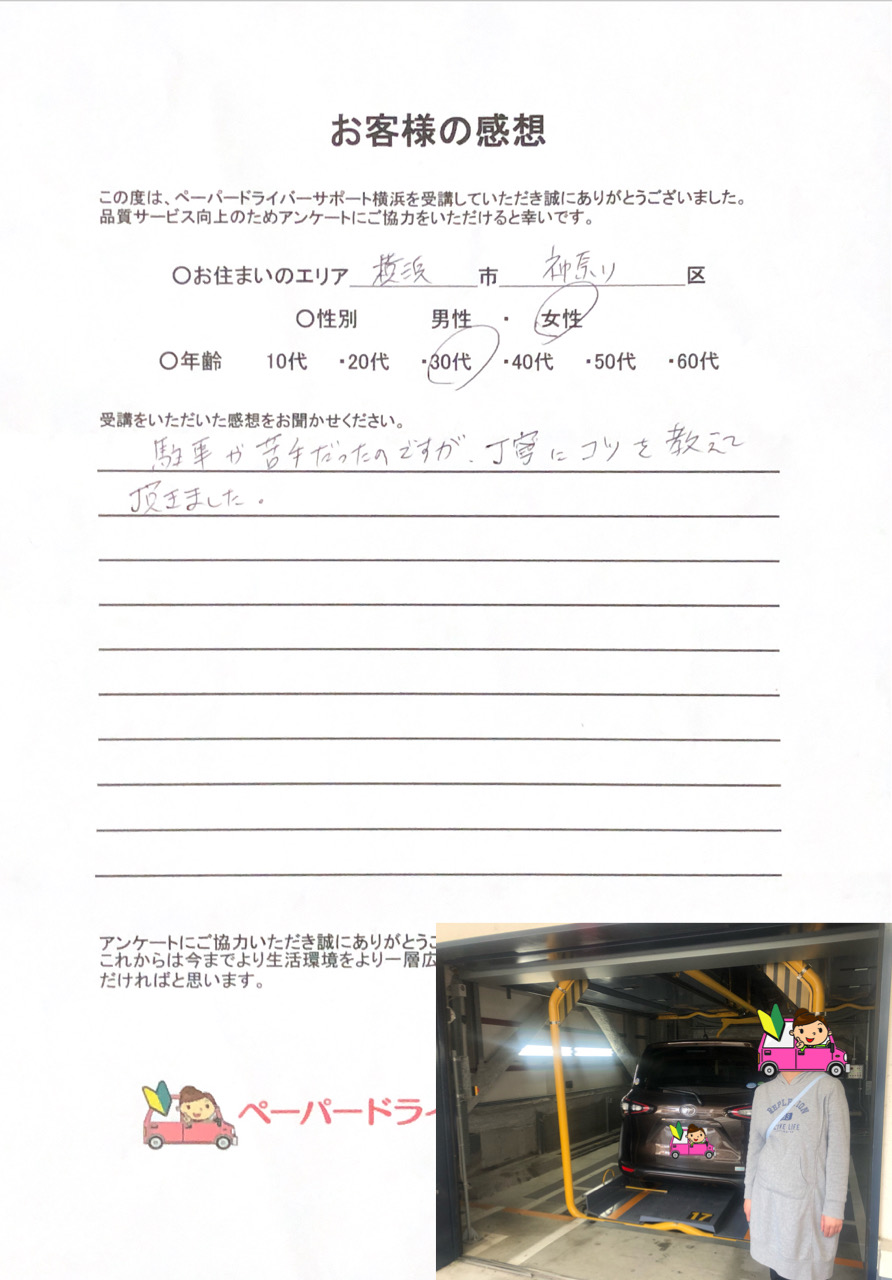 お客様の感想
この度は、ペーパードライバーサポート横浜を受講していただき誠にありがとうございました。
品質サービス向上のためアンケートにご協力をいただけると幸いです。
〇お住まいのエリア 横浜 市 神奈川 区
〇性別 男性 ・ 女性
〇年齢 10代 ・20代 ・30代 ・40代 ・50代 ・60代
受講をいただいた感想をお聞かせください。
駐車が苦手だったのですが、丁寧にコツを教えて
頂きました。
アンケートにご協力いただき誠にありがとう
これからは今までより生活環境をより一層広
だければと思います。
ペーパードライ
17